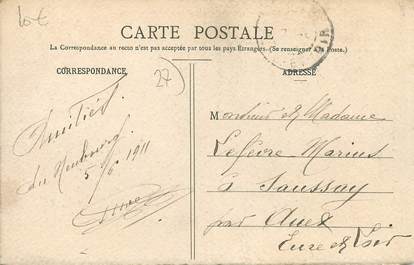 10 €
CARTE POSTALE
La Correspondance au recto n'est pas acceptée par tous les pays Etrangers. (Se renseigner à la Poste.)
CORRESPONDANCE
27
ADRESSE
Amitiés
du Neubourg
5/6 1911
Monsieur & Madame
Lefèvre Marius
à Saussay
par Anet
Eure & Loir